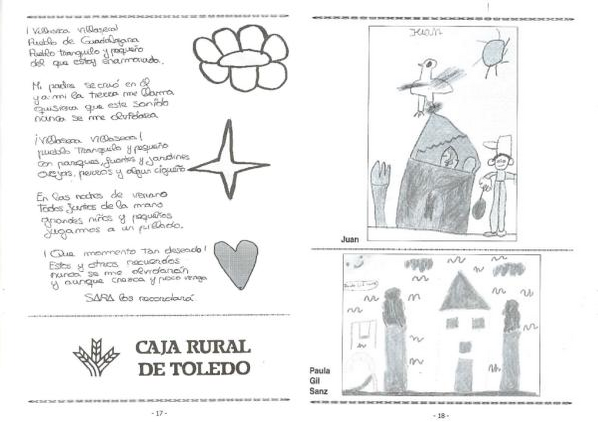 ¡Villaseca Villaseca!
Pueblo de Guadalajara
Pueblo tranquilo y pequeño
del que estoy enamorada.
Mi padre se crió en él
y a mi la tierra me llama
quisiera que este sonido
nunca se me olvidara
¡Villaseca Villaseca!
pueblo tranquilo y pequeño
con parques, fuentes y jardines
ovejas, perros y algun cigueño
En las noches de verano
Todos juntos de la mano
grandes niños y pequeños
jugamos a un pillado.
¡Que momento tan deseado!
Estos y otros recuerdos
nunca se me olvidarán
y aunque crezca y poco venga
SARA los recordará
CAJA RURAL
DE TOLEDO
- 17 -
JUAN
Juan
Paula
Gil
Sanz
- 18 -